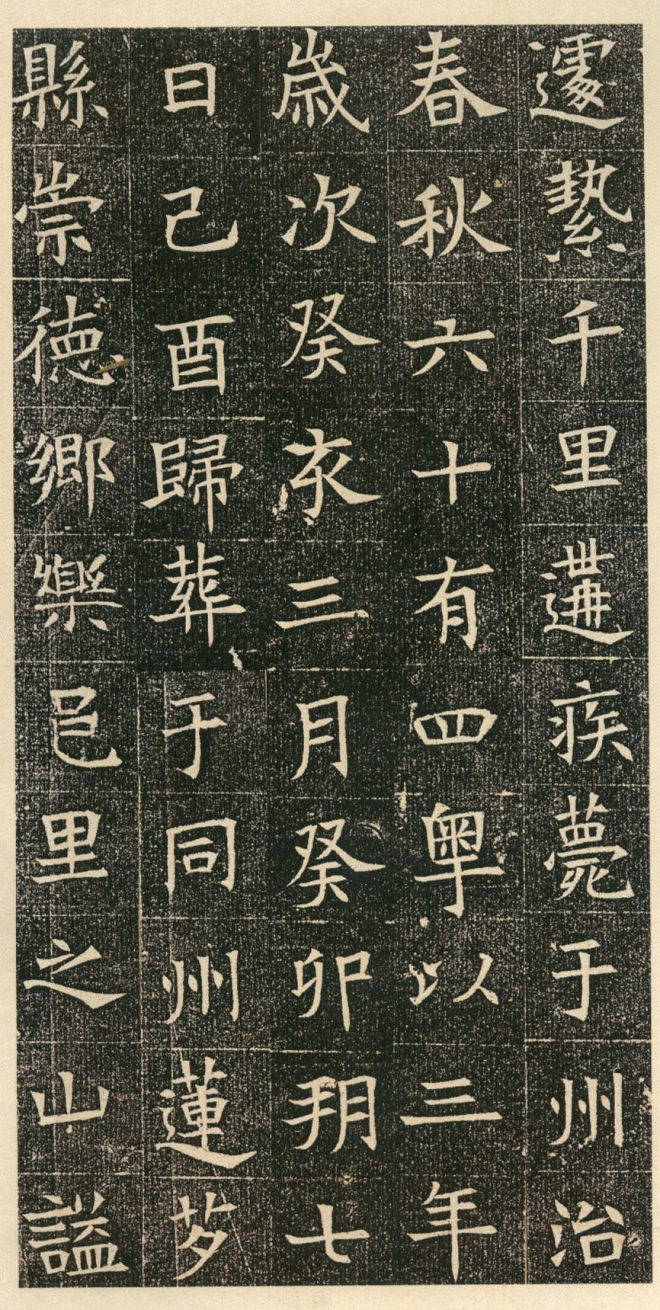 遽縶千里遘疾薨于州治
春秋六十有四粤以三年
歲次癸亥三月癸卯朔七
日己酉歸葬于同州蓮芍
縣崇徳鄉樂邑里之山謚